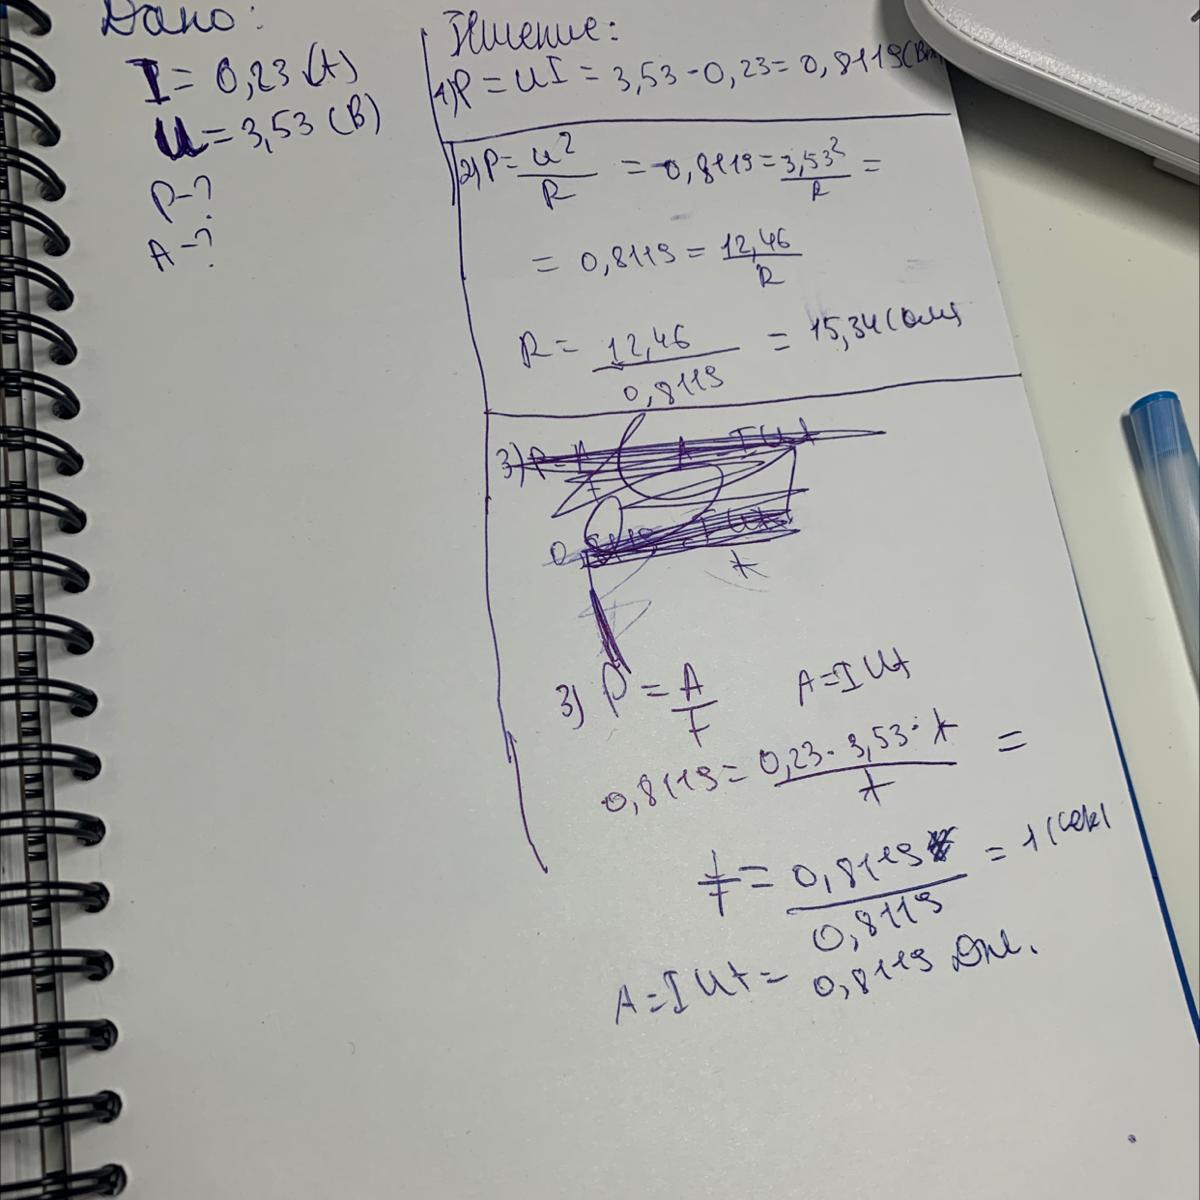 Дано:
I = 0,23 (А)
U = 3,53 (В)
P - ?
A - ?
Решение:
1) P = UI = 3,53 · 0,23 = 0,8119 (Вт)
2) P = U²/R = 0,8119 = 3,53²/R =
= 0,8119 = 12,46/R
R = 12,46/0,8119 = 15,34 (Ом)
3) P = A/t A = IUt
0,8119 = 0,23 · 3,53 · t/t =
t = 0,8119/0,8119 = 1 (сек)
A = IUt = 0,8119 Дж.